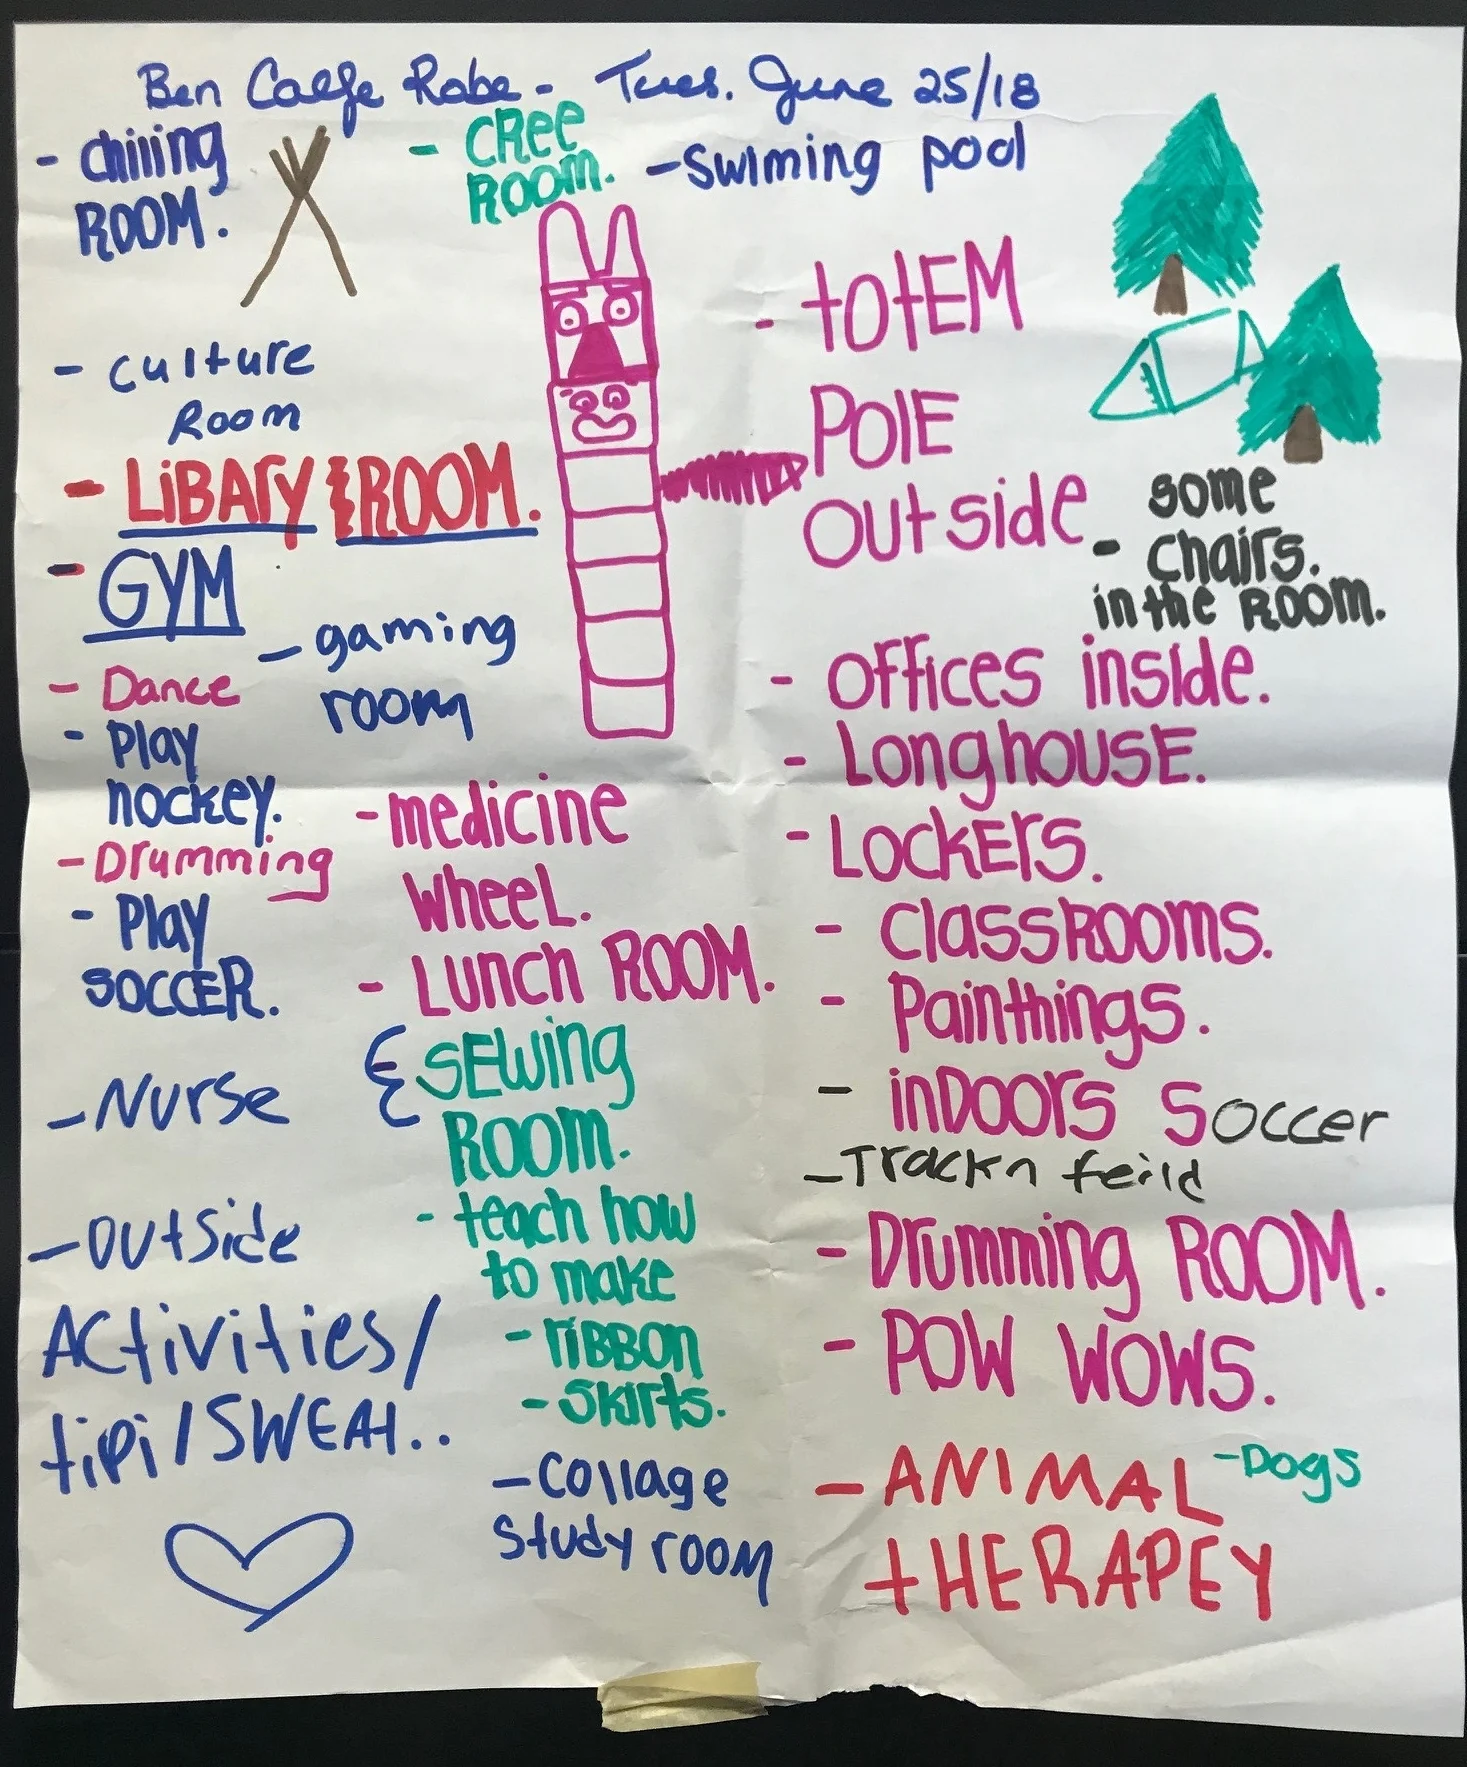 Ben Calfe Robe - Tues. June 25/18
- chiiing
ROOM.
- CRee
ROOM.
- Swiming pool
- culture
Room
- LiBAry ROOM.
- GYM
- gaming
room
- Dance
- Play
hockey.
- Drumming
- Play
SOCCER.
- Nurse
- outside
Activities/
tipi/SWEAt..
- totEM
POlE
outside
- some
chairs.
in the ROOM.
- medicine
wheeL.
- Lunch ROOM.
& SEwing
ROOM.
- teach how
to make
- riBBon
- Skirts.
- Collage
study room
- offices inside.
- LonghouSE.
- LockErs.
- ClassRooms.
- Painthings.
- inDoors Soccer
- Trackn feild
- Drumming ROOM.
- POW WOWS.
- ANIMAL - Dogs
tHERAPEY